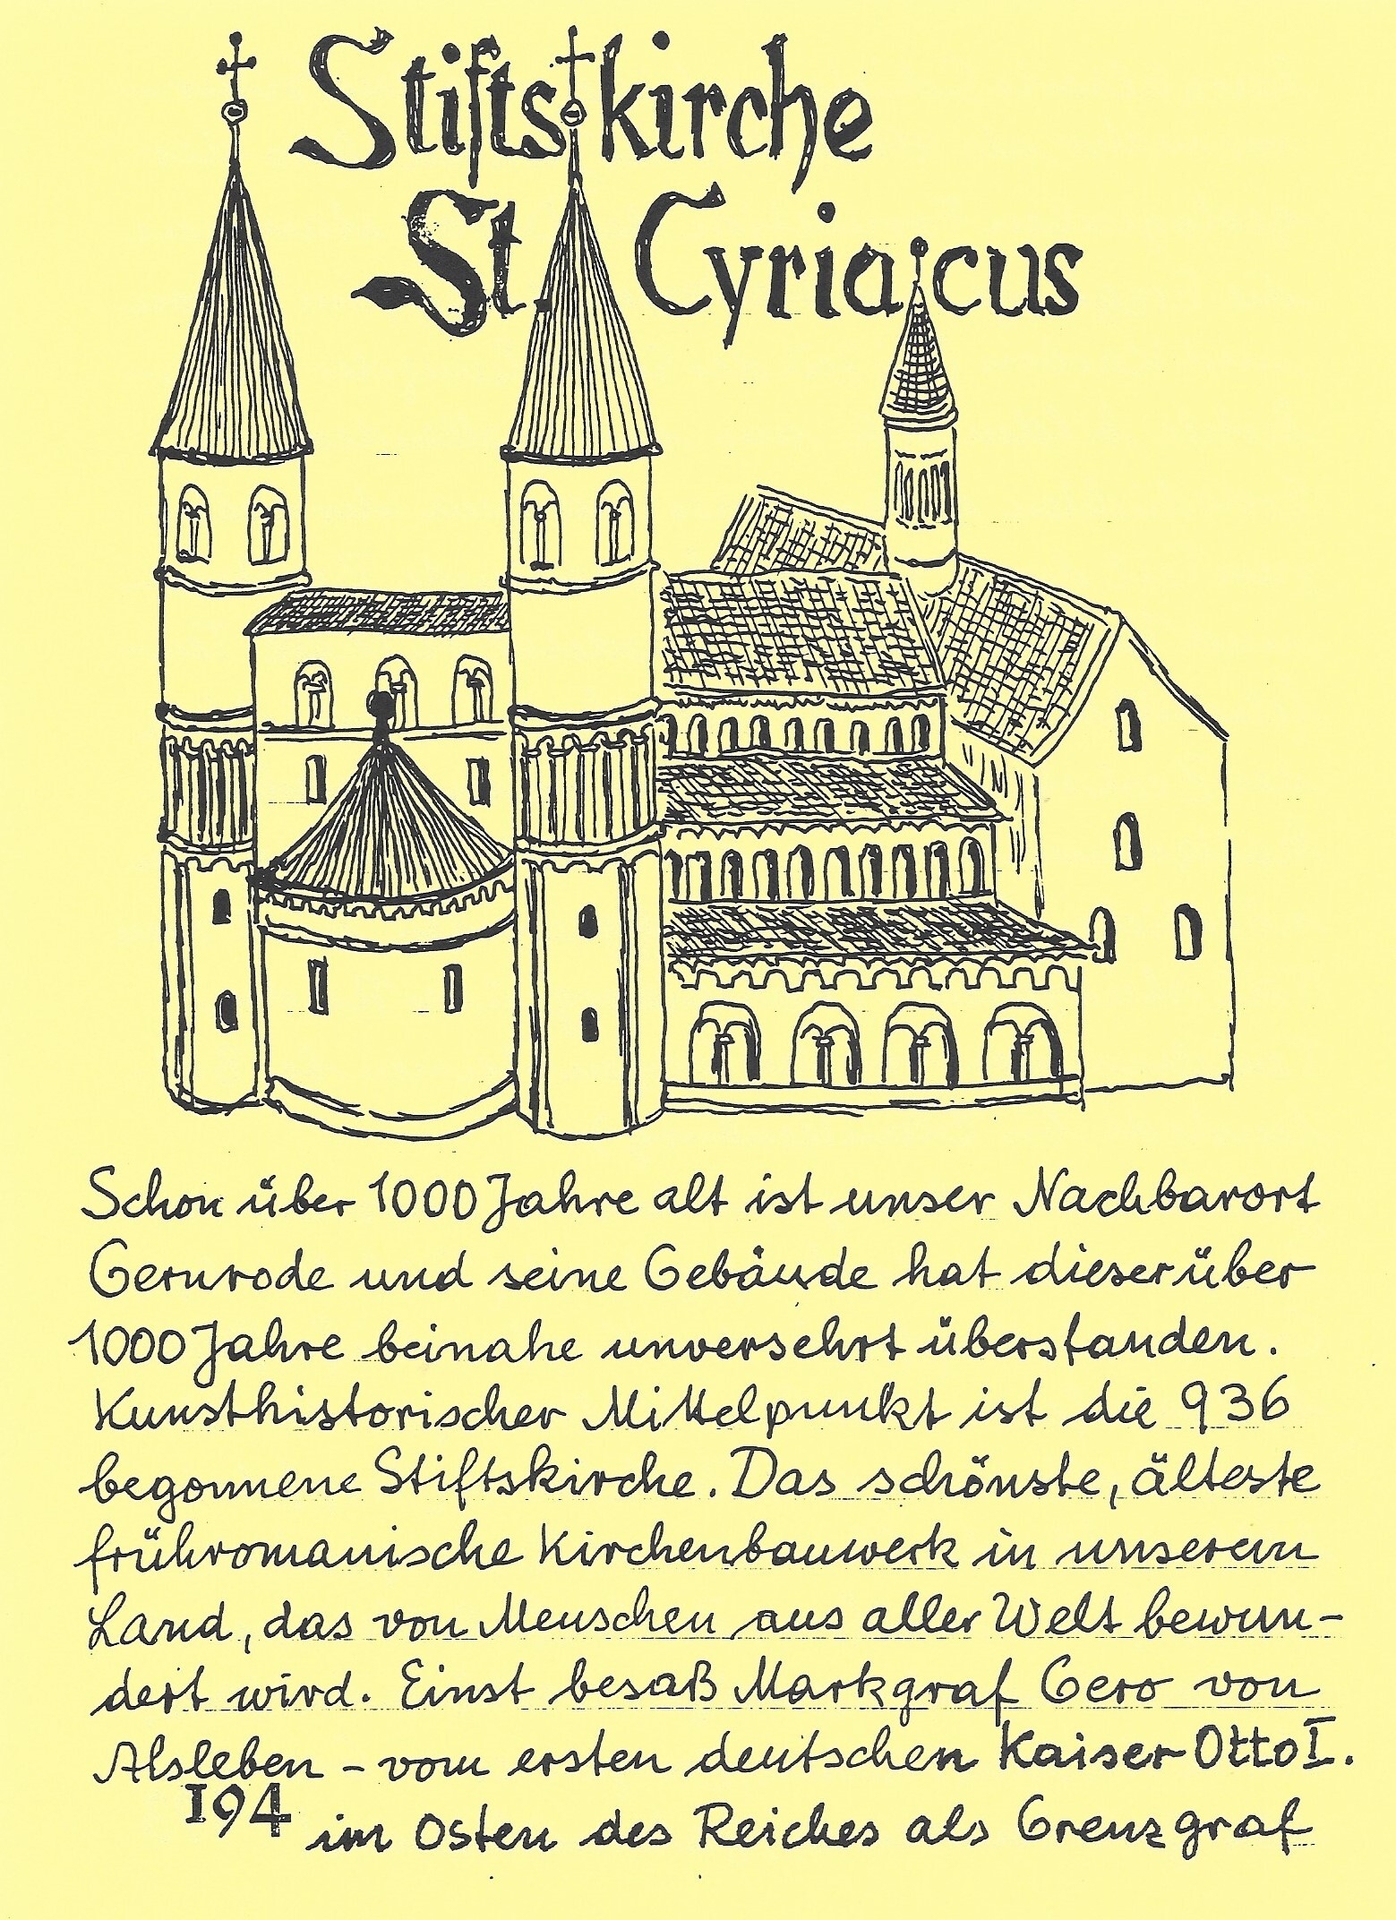 Stiftskirche
St. Cyriacus
Schon über 1000 Jahre alt ist unser Nachbarort
Gernrode und seine Gebäude hat dieser über
1000 Jahre beinahe unversehrt überstanden.
Kunsthistorischer Mittelpunkt ist die 936
begonnene Stiftskirche. Das schönste, älteste
frühromanische Kirchenbauwerk in unserem
Land, das von Menschen aus aller Welt bewun-
dert wird. Einst besaß Markgraf Gero von
Alsleben - vom ersten deutschen Kaiser Otto I.
194 im Osten des Reiches als Grenzgraf